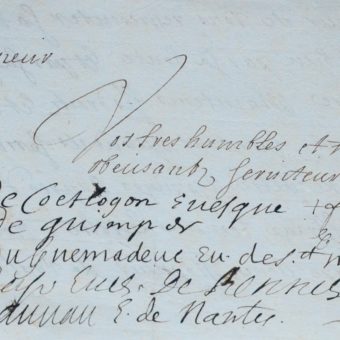 neur
Vos tres humbles et
obeisantz seruiteur
de Coetlogon Euesque
de quimper
Guemadeuc Eu. de st
Eues. De Rennes
E. de Nantes.